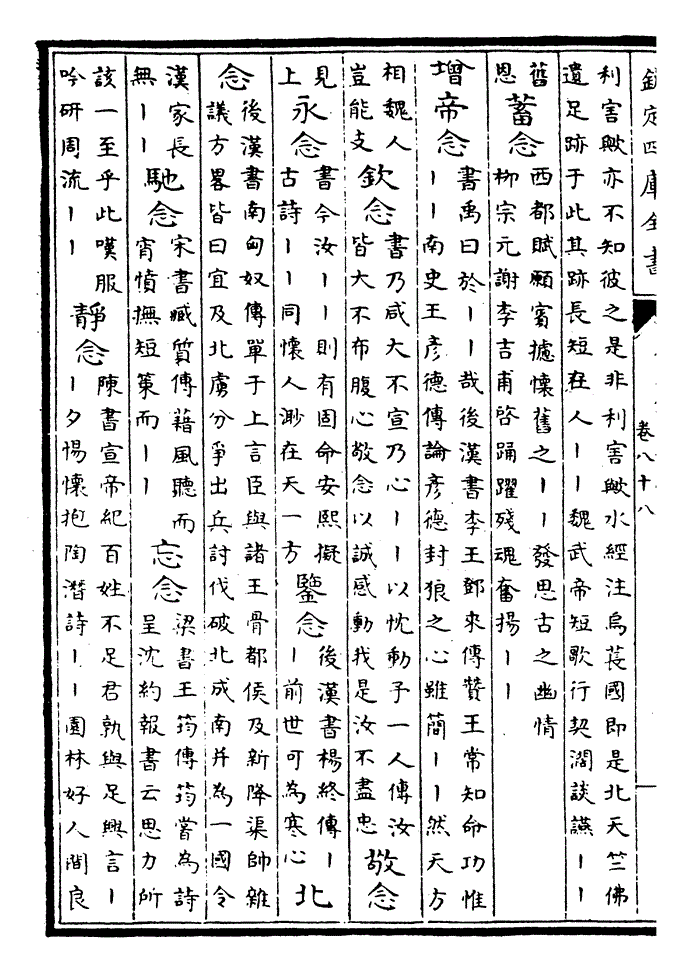 欽定四庫全書
卷八十八
一
利害歟亦不知彼之是非利害歟水經注烏萇國即是北天竺佛
遺足跡于此其跡長短在人丨丨魏武帝短歌行契闊談讌丨丨
舊
恩
蓄念
西都賦願賓攄懷舊之丨丨發思古之幽情
柳宗元謝李吉甫啓踊躍殘魂奮揚丨丨
增帝念
書禹曰於丨丨哉後漢書李王鄧來傳贊王常知命功惟
丨丨南史王彥德傳論彥德封狼之心雖簡丨丨然天方
相魏人
豈能支
欽念
書乃咸大不宣乃心丨丨以忱動予一人傳汝
皆大不布腹心敬念以誠感動我是汝不盡忠
敬念
見
上
永念
書今汝丨丨則有固命安熙擬
古詩丨丨同懷人渺在天一方
鑒念
後漢書楊終傳丨
丨前世可為寒心
北
念
後漢書南匈奴傳單于上言臣與諸王骨都侯及新降渠帥雜
議方畧皆曰宜及北虜分爭出兵討伐破北成南并為一國令
漢家長
無丨丨
馳念
宋書臧質傳藉風聽而
宵憤撫短策而丨丨
忘念
梁書王筠傳筠嘗為詩
呈沈約報書云思力所
該一至乎此嘆服
吟研周流丨丨
靜念
陳書宣帝紀百姓不足君孰與足興言丨
丨夕惕懷抱陶潛詩丨丨園林好人間良